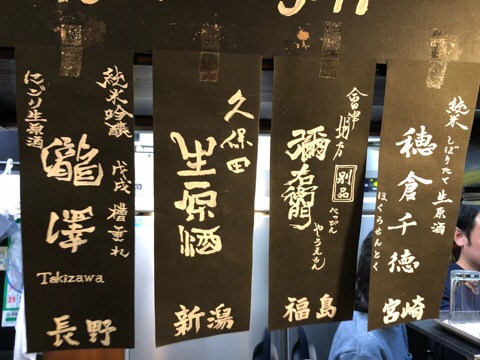 純米吟醸
戊戌 槽垂れ
瀧澤
Takizawa
にごり生原酒
長野
久保田
生原酒
新潟
會津
喜多方
彌右衛門
別品
べっぴん
やうえもん
福島
純米
しぼりたて
生原酒
穂倉千徳
ほくらせんとく
宮崎